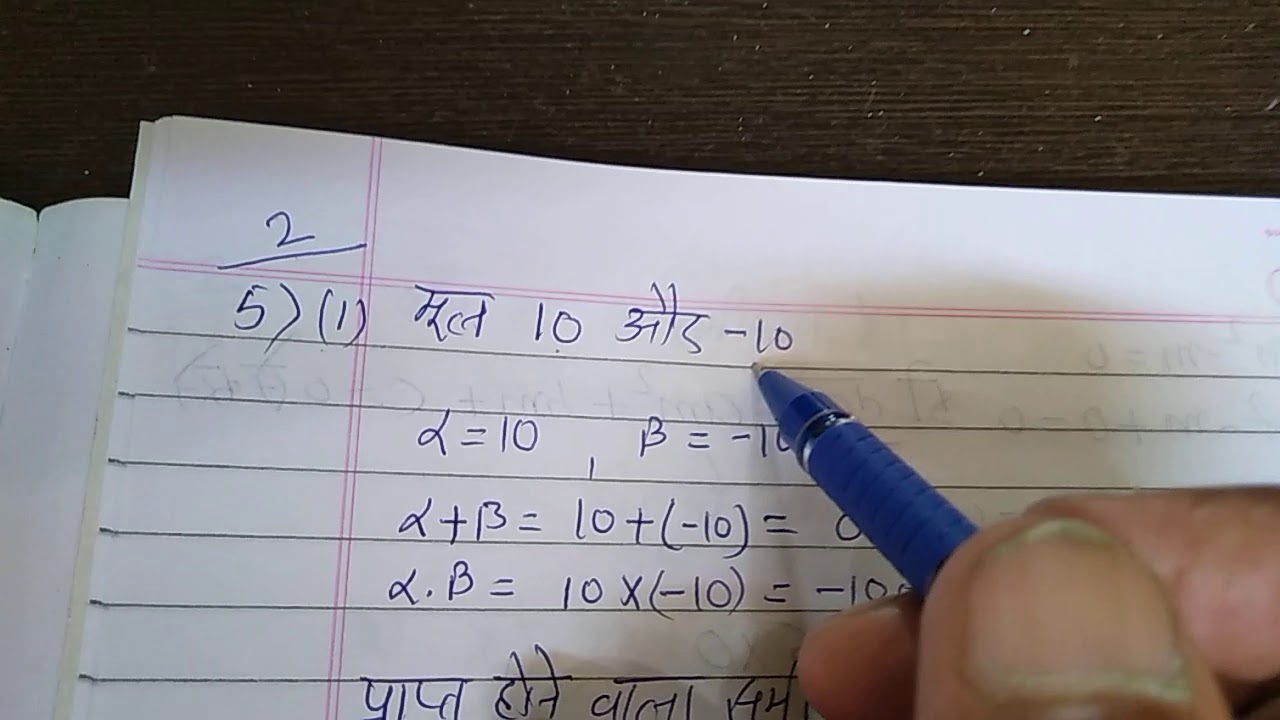 2
5) (1) मूल 10 और -10
α = 10 , β = -10
α + β = 10 + (-10) = 0
α . β = 10 × (-10) = -100
प्राप्त होने वाला